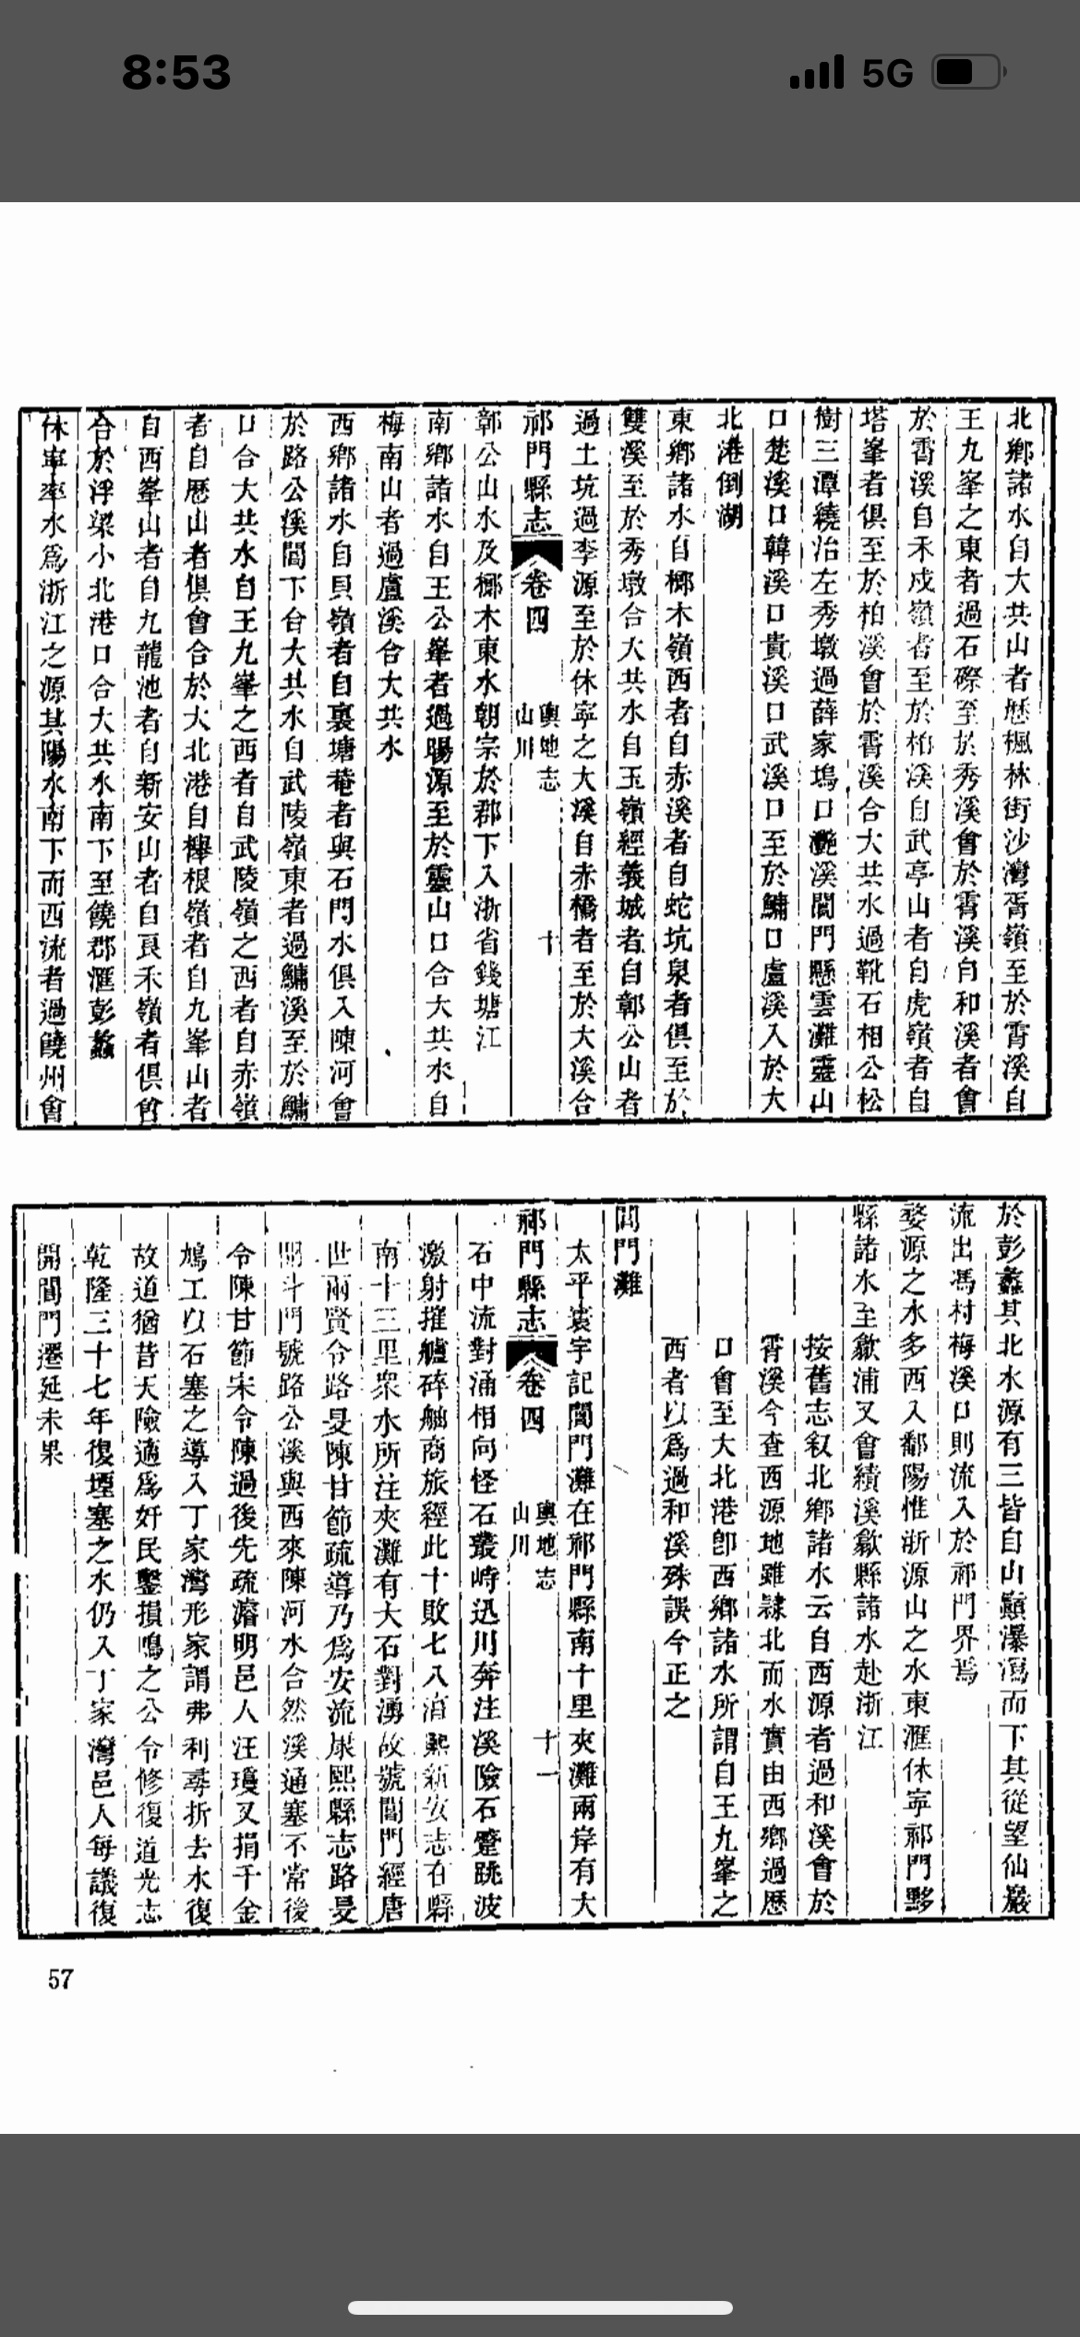 8:53
5G
北鄉諸水自大共山者歷楓林街沙灣胥嶺至於霄溪自
王九峯之東者過石際至於秀溪會於霄溪自和溪者會
於霄溪自禾戍嶺者至於柏溪自武亭山者自虎嶺者自
塔峯者俱至於柏溪會於霄溪合大共水過靴石相公松
樹三潭繞治左秀墩過薛家塢口灎溪閶門懸雲灘靈山
口楚溪口韓溪口貴溪口武溪口至於鱅口盧溪入於大
北港倒湖
東鄉諸水自榔木嶺西者自赤溪者自蛇坑泉者俱至於
雙溪至於秀墩合大共水自玉嶺經義城者自郭公山者
過土坑過李源至於休寧之大溪自赤橋者至於大溪合
祁門縣志
卷四
輿地志
山川
十
鄣公山水及榔木東水朝宗於郡下入浙省錢塘江
南鄉諸水自王公峯者過暘源至於靈山口合大共水自
梅南山者過盧溪合大共水
西鄉諸水自貝嶺者自裏塘菴者與石門水俱入陳河會
於路公溪閶下合大共水自武陵嶺東者過鱅溪至於鱅
口合大共水自王九峯之西者自武陵嶺之西者自赤嶺
者自歷山者俱會合於大北港自櫸根嶺者自九峯山者
自西峯山者自九龍池者自新安山者自良禾嶺者俱會
合於浮梁小北港口合大共水南下至饒郡滙彭蠡
休寧率水爲浙江之源其陽水南下而西流者過饒州會
於彭蠡其北水源有三皆自山顚瀑瀉而下其從望仙巖
流出馮村梅溪口則流入於祁門界焉
婺源之水多西入鄱陽惟浙源山之水東滙休寧祁門黟
縣諸水至歙浦又會績溪歙縣諸水赴浙江
按舊志叙北鄉諸水云自西源者過和溪會於
霄溪今查西源地雖隷北而水實由西鄉過歷
口會至大北港卽西鄉諸水所謂自王九峯之
西者以爲過和溪殊誤今正之
閶門灘
太平寰宇記閶門灘在祁門縣南十里夾灘兩岸有大
祁門縣志
卷四
輿地志
山川
十一
石中流對涌相向怪石叢峙迅川奔注溪險石蹙跳波
激射摧艫碎舳商旅經此十敗七八淳熙新安志在縣
南十三里衆水所注夾灘有大石對湧故號閶門經唐
世兩賢令路旻陳甘節疏導乃爲安流康熙縣志路旻
開斗門號路公溪與西來陳河水合然溪通塞不常後
令陳甘節宋令陳過後先疏濬明邑人汪瓊又捐千金
鳩工以石塞之導入丁家灣形家謂弗利尋折去水復
故道猶昔天險適爲奸民鑿損鳴之公令修復道光志
乾隆三十七年復堙塞之水仍入丁家灣邑人每議復
開閶門遷延未果
57